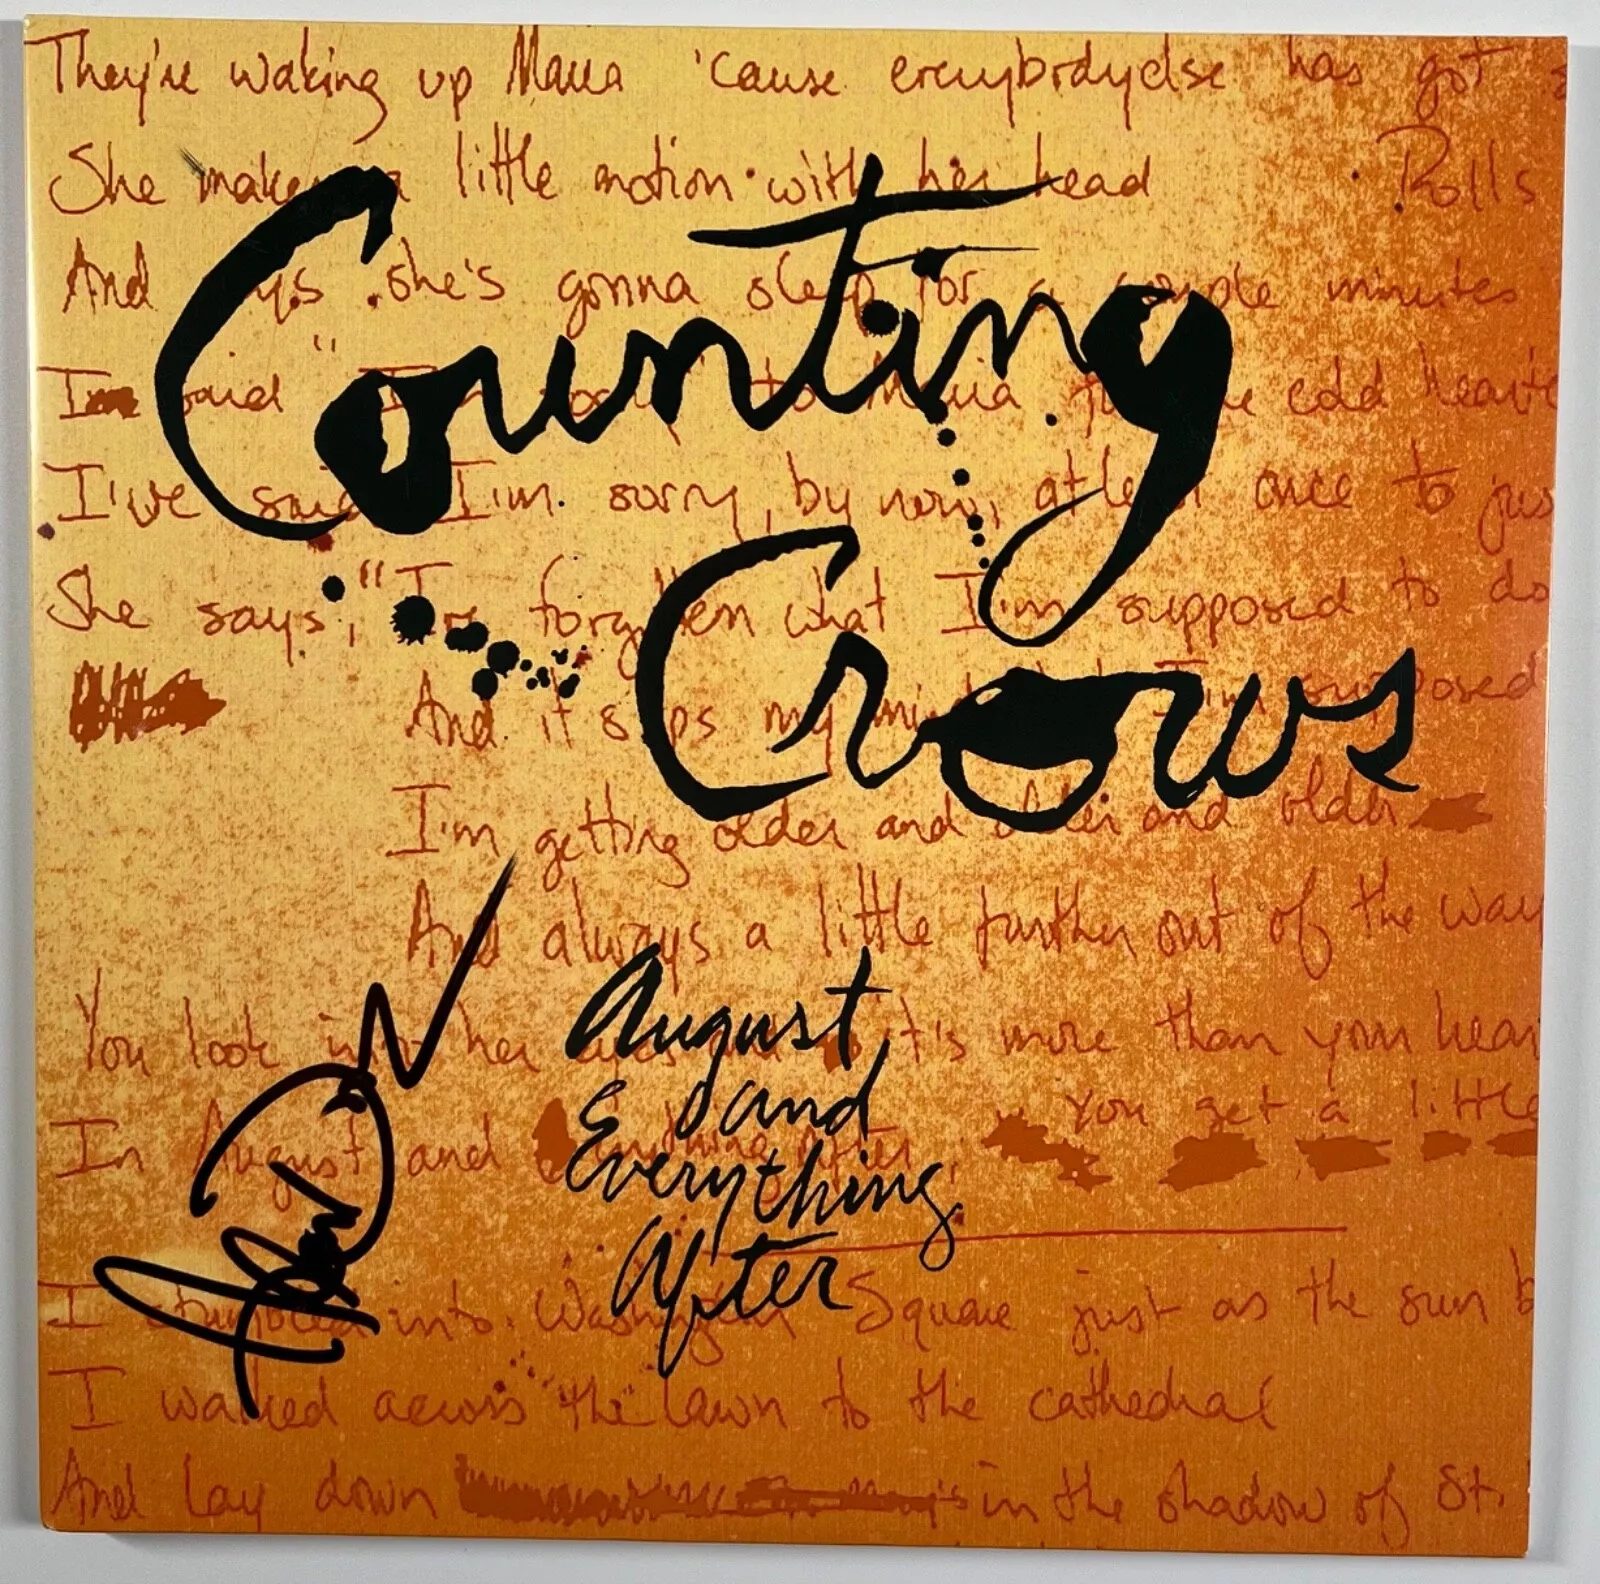 They're waking up Maria 'cause everybodyelse has got
She makes a little motion with her head Rolls
Counting
And says she's gonna sleep for a couple minutes
said "I'm sorry" to Maria the cold hearte
I've said I'm sorry, by now, at least once to jus
She says, "I've forgotten what I'm supposed to do
Crows
And it slips my mind I'm supposed
I'm getting older and older and older
And always a little further out of the way
You look into her eyes it's more than your hear
August
and
Everything
After
In August and Everything After, You get a little
I stumbled into Washington Square just as the sun b
I walked across the lawn to the cathedral
And lay down in the shadow of St.